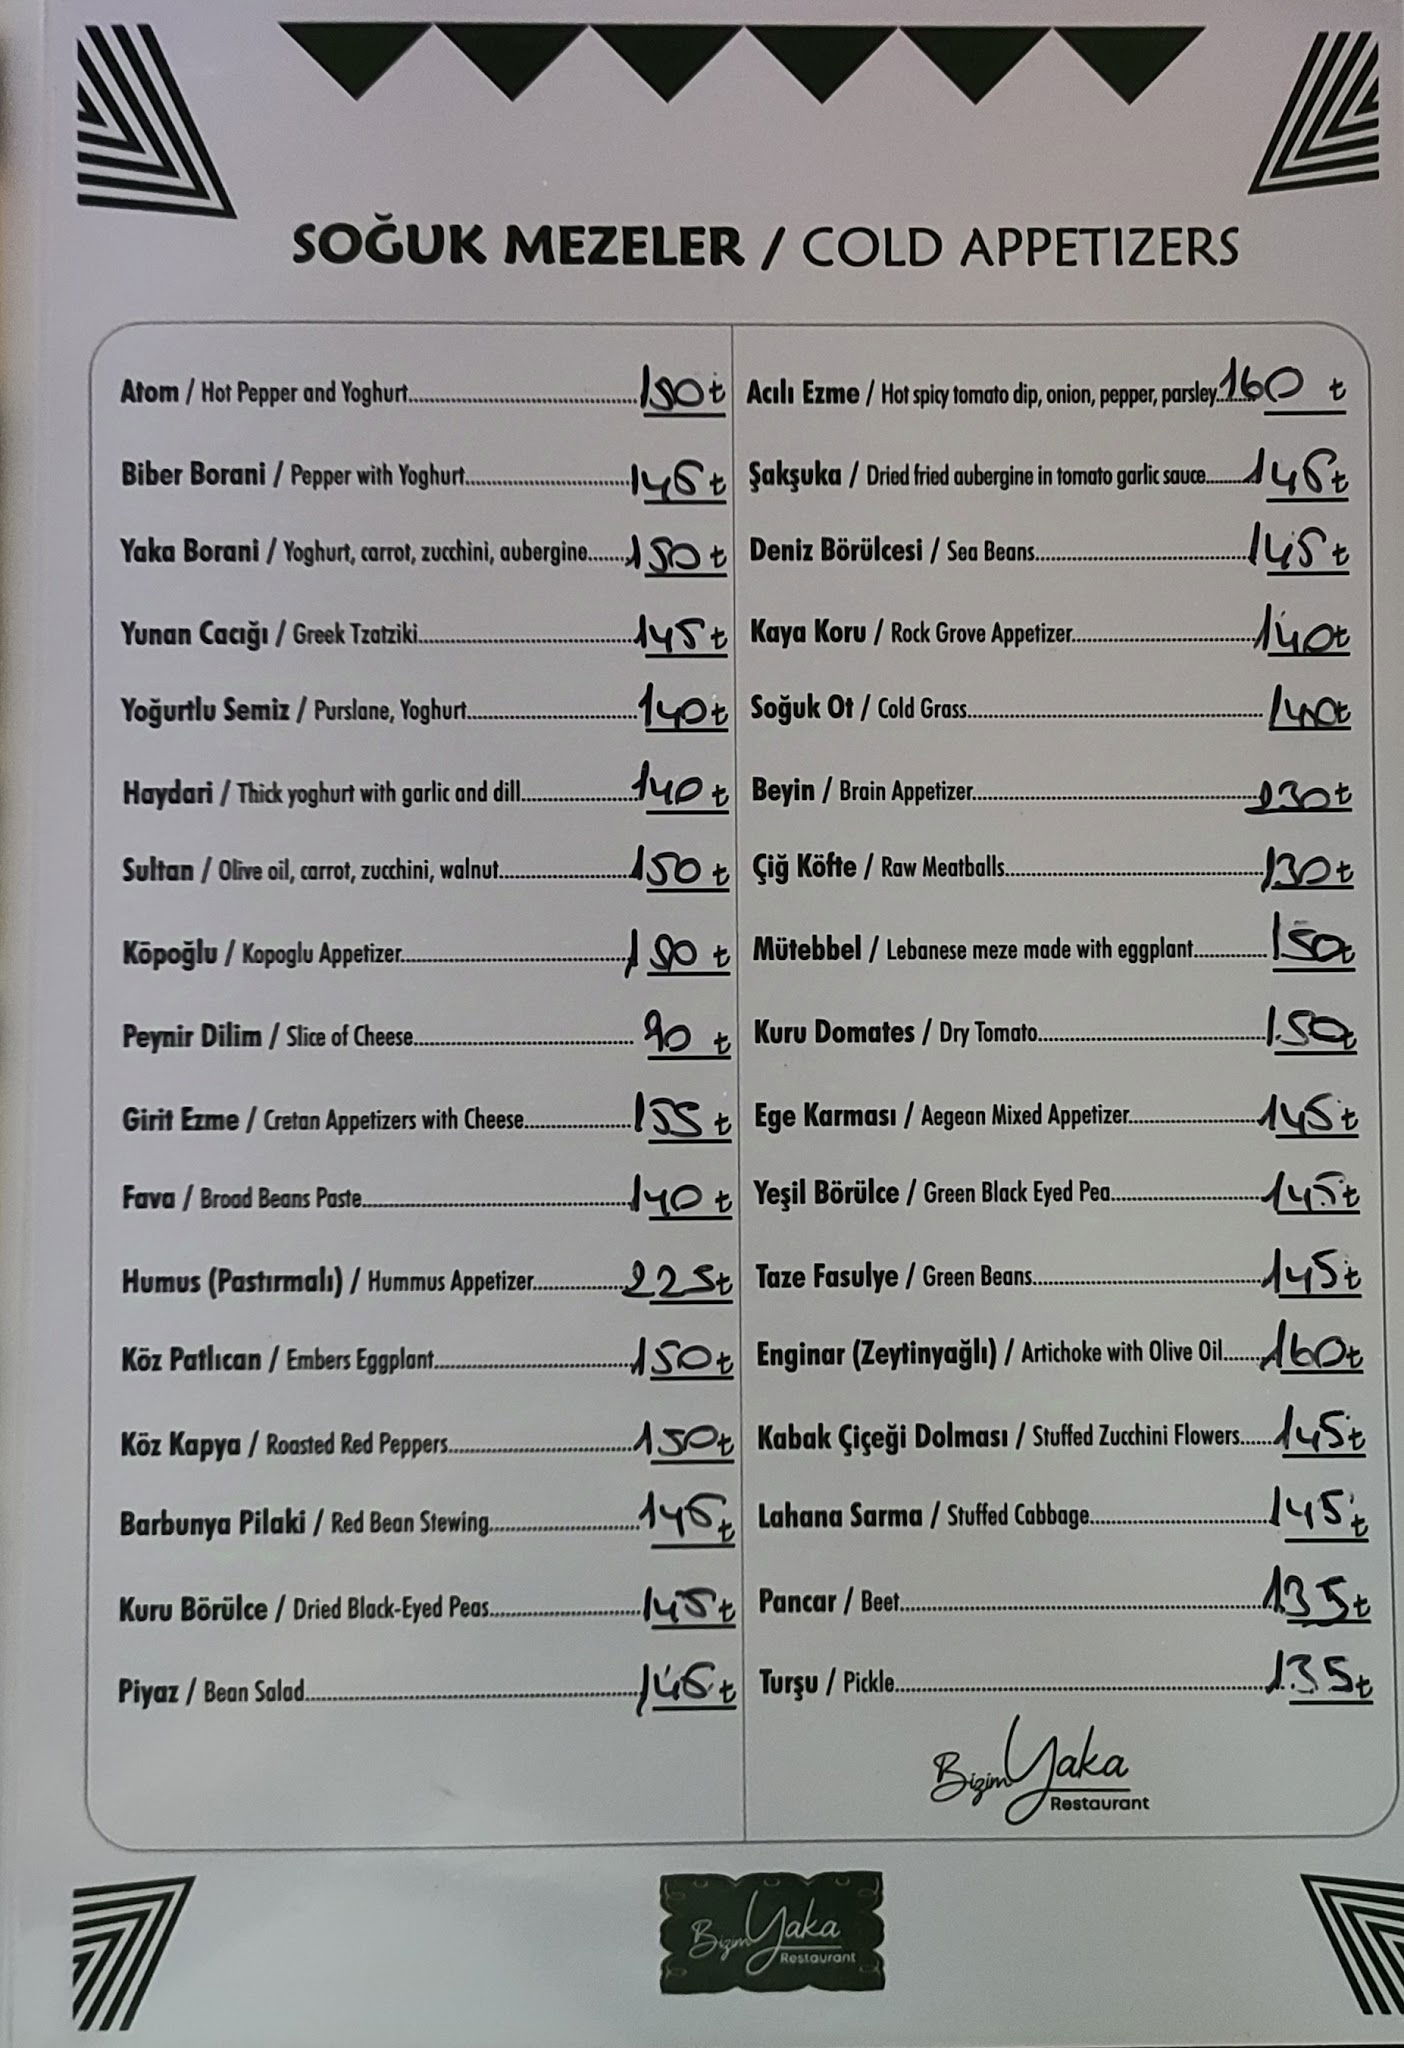 SOĞUK MEZELER / COLD APPETIZERS
Atom / Hot Pepper and Yoghurt 150₺
Biber Borani / Pepper with Yoghurt 145₺
Yaka Borani / Yoghurt, carrot, zucchini, aubergine 150₺
Yunan Cacığı / Greek Tzatziki 145₺
Yoğurtlu Semiz / Purslane, Yoghurt 140₺
Haydari / Thick yoghurt with garlic and dill 140₺
Sultan / Olive oil, carrot, zucchini, walnut 150₺
Köpoğlu / Kopoglu Appetizer 150₺
Peynir Dilim / Slice of Cheese 90₺
Girit Ezme / Cretan Appetizers with Cheese 155₺
Fava / Broad Beans Paste 140₺
Humus (Pastırmalı) / Hummus Appetizer 225₺
Köz Patlıcan / Embers Eggplant 150₺
Köz Kapya / Roasted Red Peppers 150₺
Barbunya Pilaki / Red Bean Stewing 145₺
Kuru Börülce / Dried Black-Eyed Peas 145₺
Piyaz / Bean Salad 145₺
Acılı Ezme / Hot spicy tomato dip, onion, pepper, parsley 160₺
Şakşuka / Dried fried aubergine in tomato garlic sauce 145₺
Deniz Börülcesi / Sea Beans 145₺
Kaya Koru / Rock Grove Appetizer 140₺
Soğuk Ot / Cold Grass 140₺
Beyin / Brain Appetizer 230₺
Çiğ Köfte / Raw Meatballs 130₺
Mütebbel / Lebanese meze made with eggplant 150₺
Kuru Domates / Dry Tomato 150₺
Ege Karması / Aegean Mixed Appetizer 145₺
Yeşil Börülce / Green Black Eyed Pea 145₺
Taze Fasulye / Green Beans 145₺
Enginar (Zeytinyağlı) / Artichoke with Olive Oil 160₺
Kabak Çiçeği Dolması / Stuffed Zucchini Flowers 145₺
Lahana Sarma / Stuffed Cabbage 145₺
Pancar / Beet 135₺
Turşu / Pickle 135₺
Bizim Yaka
Restaurant
Bizim Yaka
Restaurant